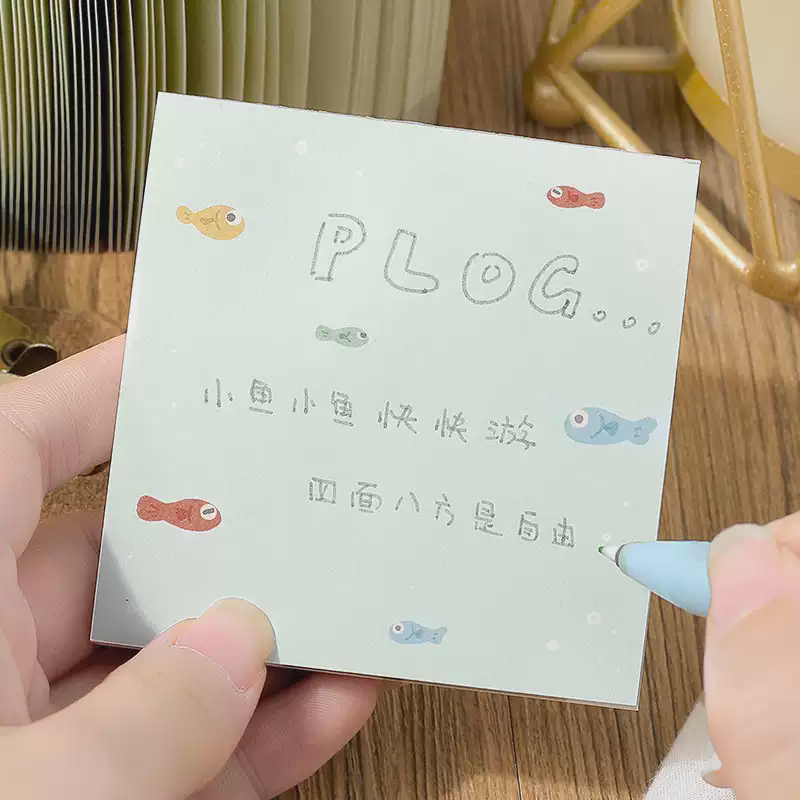 PLOG...
小鱼小鱼快快游
四面八方是自由